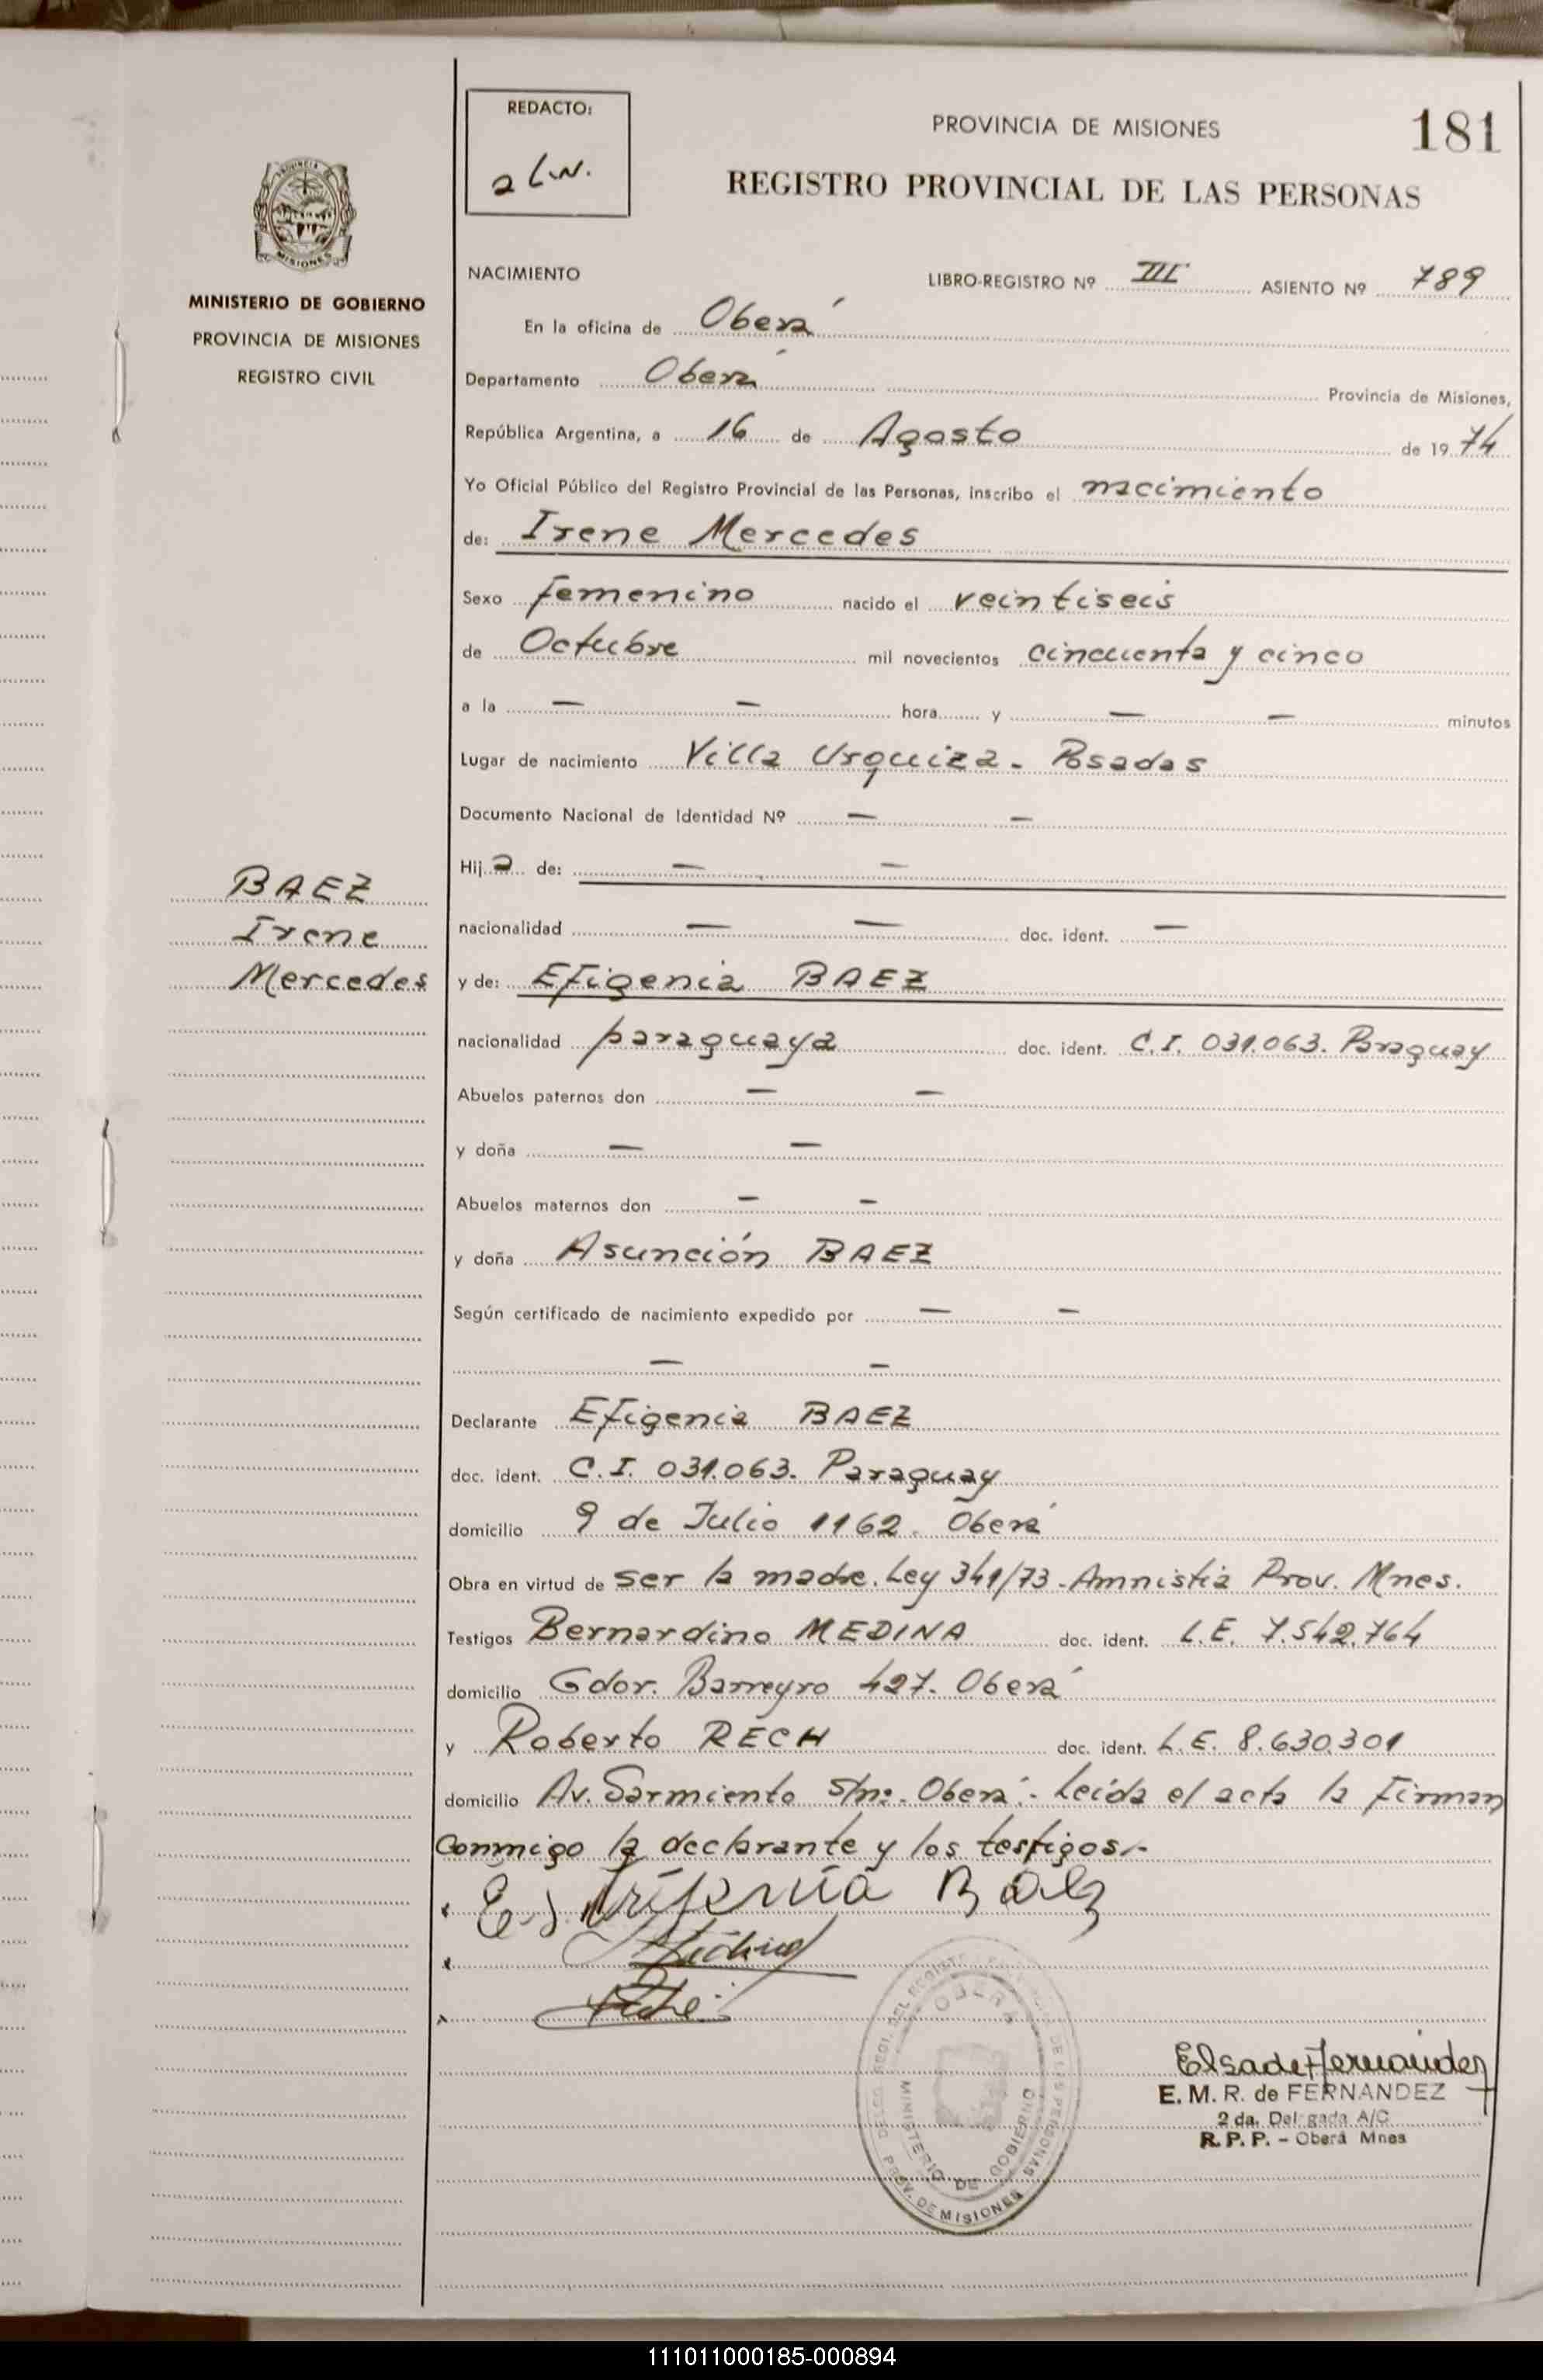 REDACTO:
PROVINCIA DE MISIONES
181
REGISTRO PROVINCIAL DE LAS PERSONAS
MISIONES
MINISTERIO DE GOBIERNO
PROVINCIA DE MISIONES
REGISTRO CIVIL
NACIMIENTO LIBRO-REGISTRO Nº III ASIENTO Nº 789
En la oficina de Oberá
Departamento Oberá Provincia de Misiones,
República Argentina, a 16 de Agosto de 1974
Yo Oficial Público del Registro Provincial de las Personas, inscribo el nacimiento
de: Irene Mercedes
Sexo femenino nacido el veintiseis
de Octubre mil novecientos cincuenta y cinco
a la — — hora y — — minutos
Lugar de nacimiento Villa Urquiza - Posadas
Documento Nacional de Identidad Nº — —
Hija de: — —
nacionalidad — — doc. ident. —
BAEZ
Irene
Mercedes
y de: Efigenia BAEZ
nacionalidad paraguaya doc. ident. C.I. 031.063. Paraguay
Abuelos paternos don — —
y doña — —
Abuelos maternos don — —
y doña Asunción BAEZ
Según certificado de nacimiento expedido por — —
— —
Declarante Efigenia BAEZ
doc. ident. C.I. 031.063. Paraguay
domicilio 9 de Julio 1162. Oberá
Obra en virtud de ser la madre. Ley 341/73 - Amnistia Prov. Mnes.
Testigos Bernardino MEDINA doc. ident. L.E. 7.542.764
domicilio Gdor. Barreyro 427. Oberá
y Roberto RECH doc. ident. L.E. 8.630.301
domicilio Av. Sarmiento s/nº. Oberá.- Leída el acta la firman
conmigo la declarante y los testigos.-
OBERA
MINISTERIO DE GOBIERNO
PROV. DE MISIONES
Elsa de Fernandez
E. M. R. de FERNANDEZ
2 da. Delegada A/C
R. P. P. - Oberá Mnes
111011000185-000894